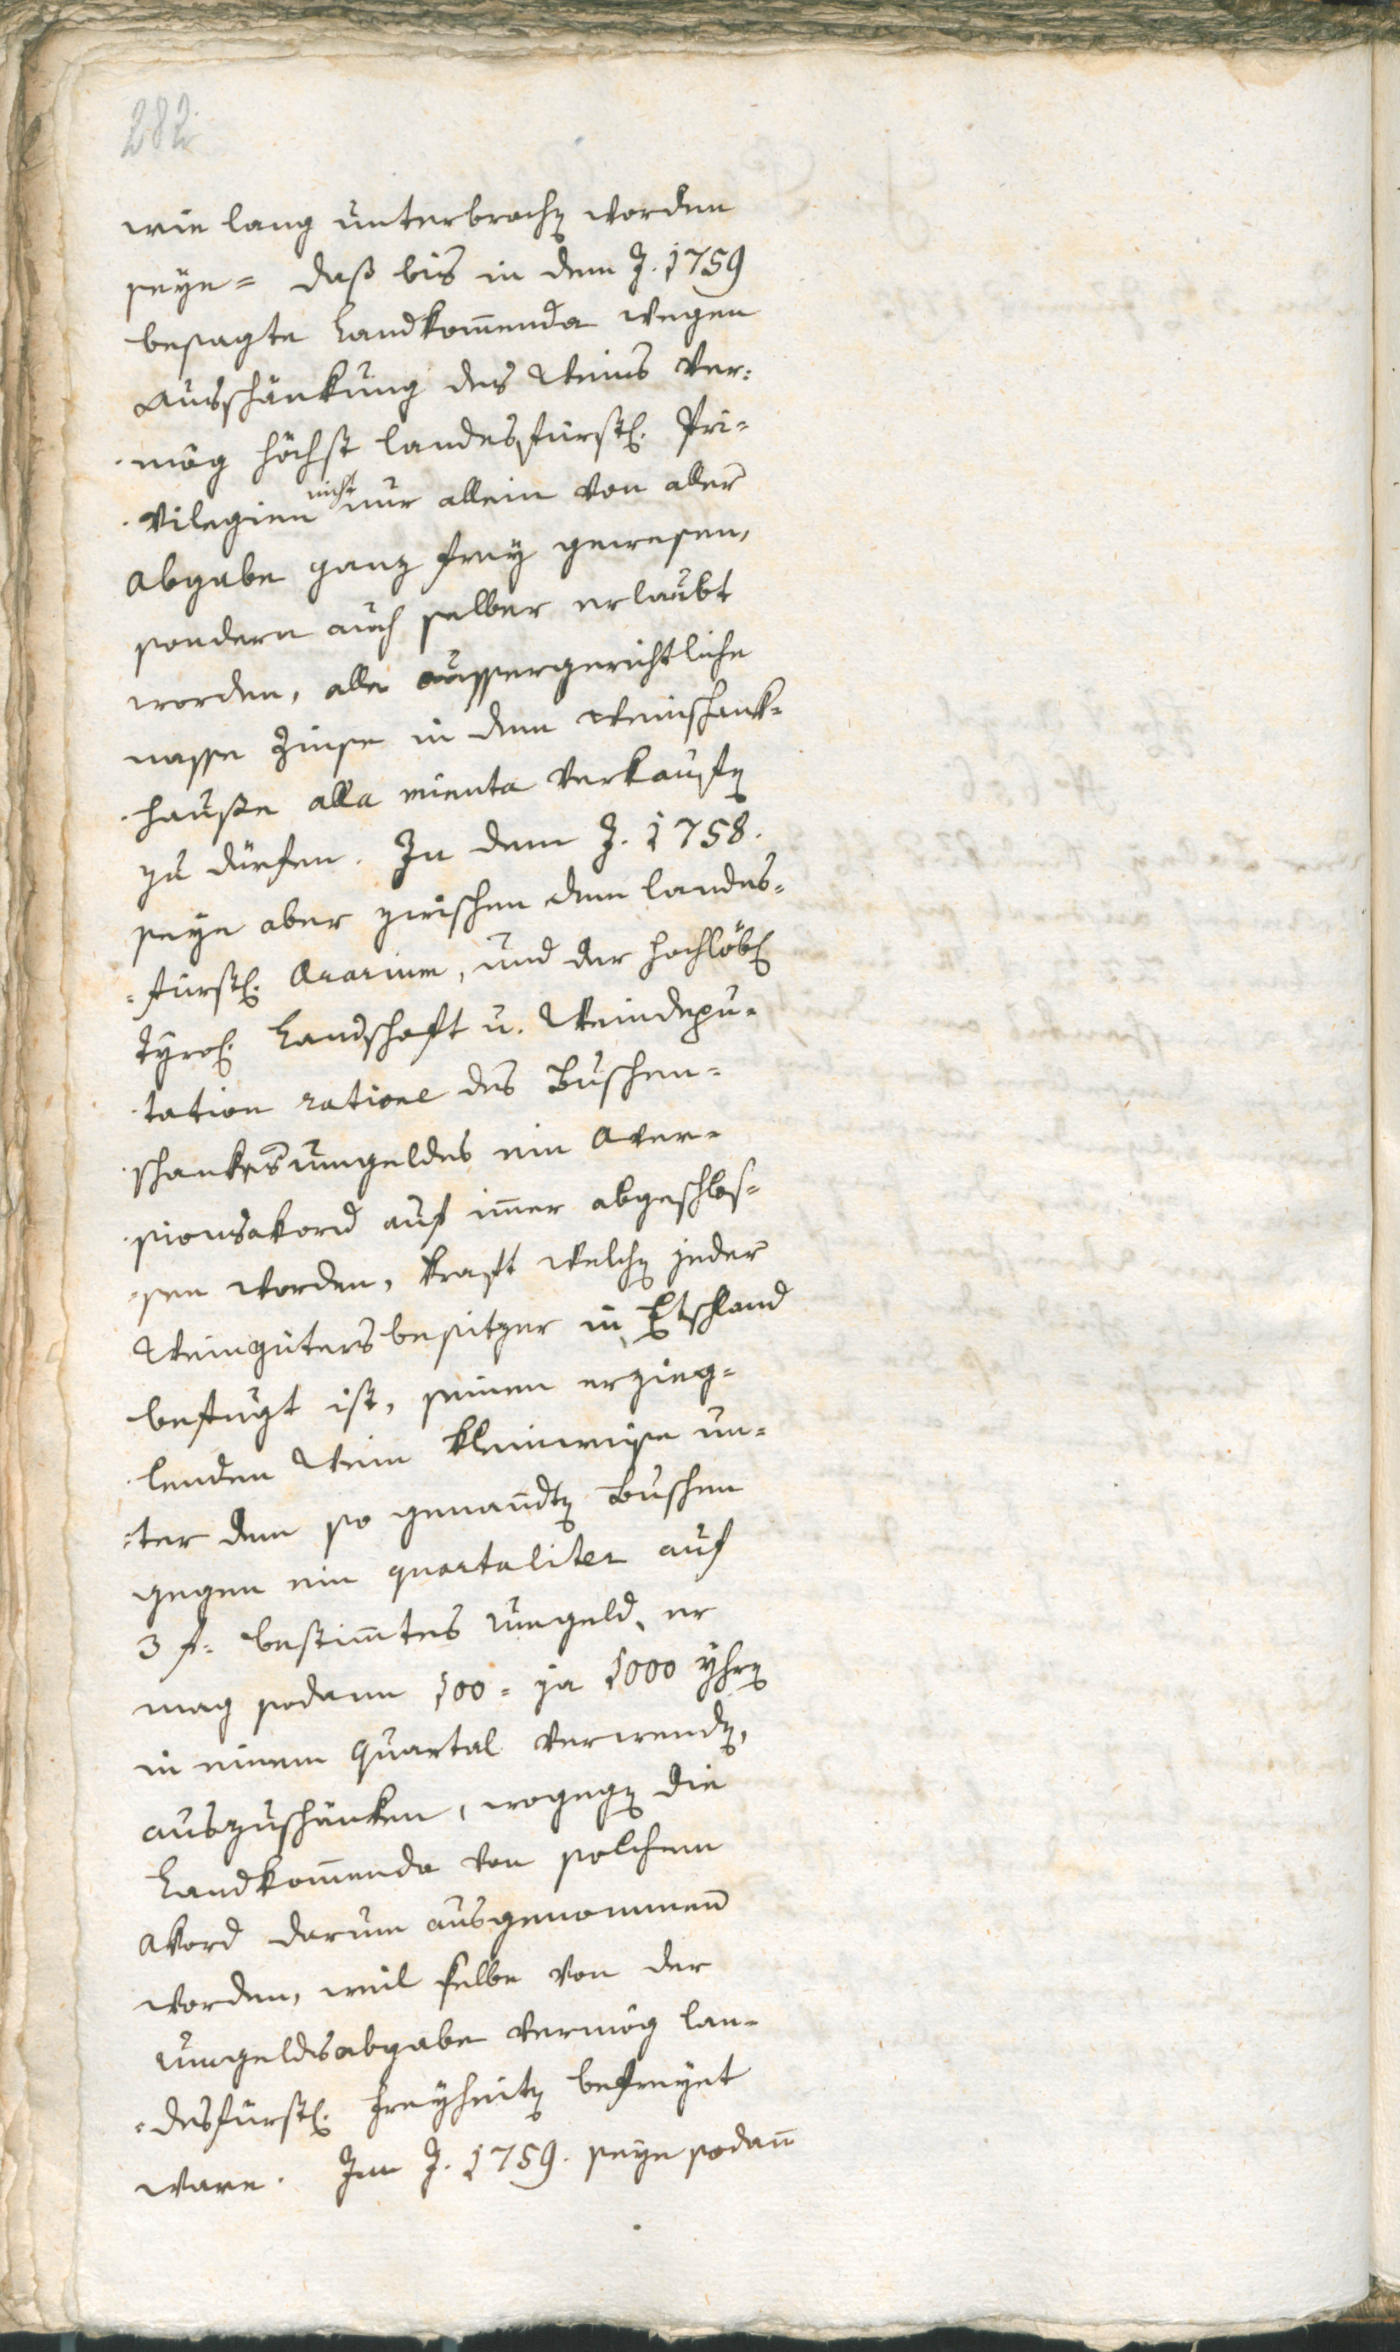 282
wie lang unterbrochen worden
seye = daß bis in dem J. 1759
besagte Landkommenda wegen
Ausschänkung des Weins ver:
mög höchst landesfürstl. Pri=
vilegien nicht nur allein von aller
Abgabe ganz frey gewesen,
sondern auch selber erlaubt
worden, alle aussergerichtliche
nasse Zinse in dem Weinschank=
hauße alla mienta verkaufen
zu dürfen. In dem J. 1758.
seye aber zwischen dem landes=
=fürstl. Ararium, und der hochlöbl
Tyrol. Landschaft u. Weindepu=
tation ratione des Buschen=
schankesumgeldes ein Aver=
sionsakord auf immer abgeschlos=
sen worden, kraft welchen jeder
Weingütersbesitzer in Etschland
befugt ist, seinen erzieg=
lenden Wein kleinweise un=
:ter dem so genandten Buschen
gegen ein quartaliter auf
3 f. bestimmtes Umgeld, er
mag sodann 100 = ja 1000 Yhren
in einem Quartal verwenden,
auszuschänken, wogegen die
Landkommenda von solchem
Akord darum ausgenommen
worden, weil selbe von der
Umgeldsabgabe vermög lan=
=desfürstl. Freyheiten befreyet
ware. Im J. 1759. seye sodann